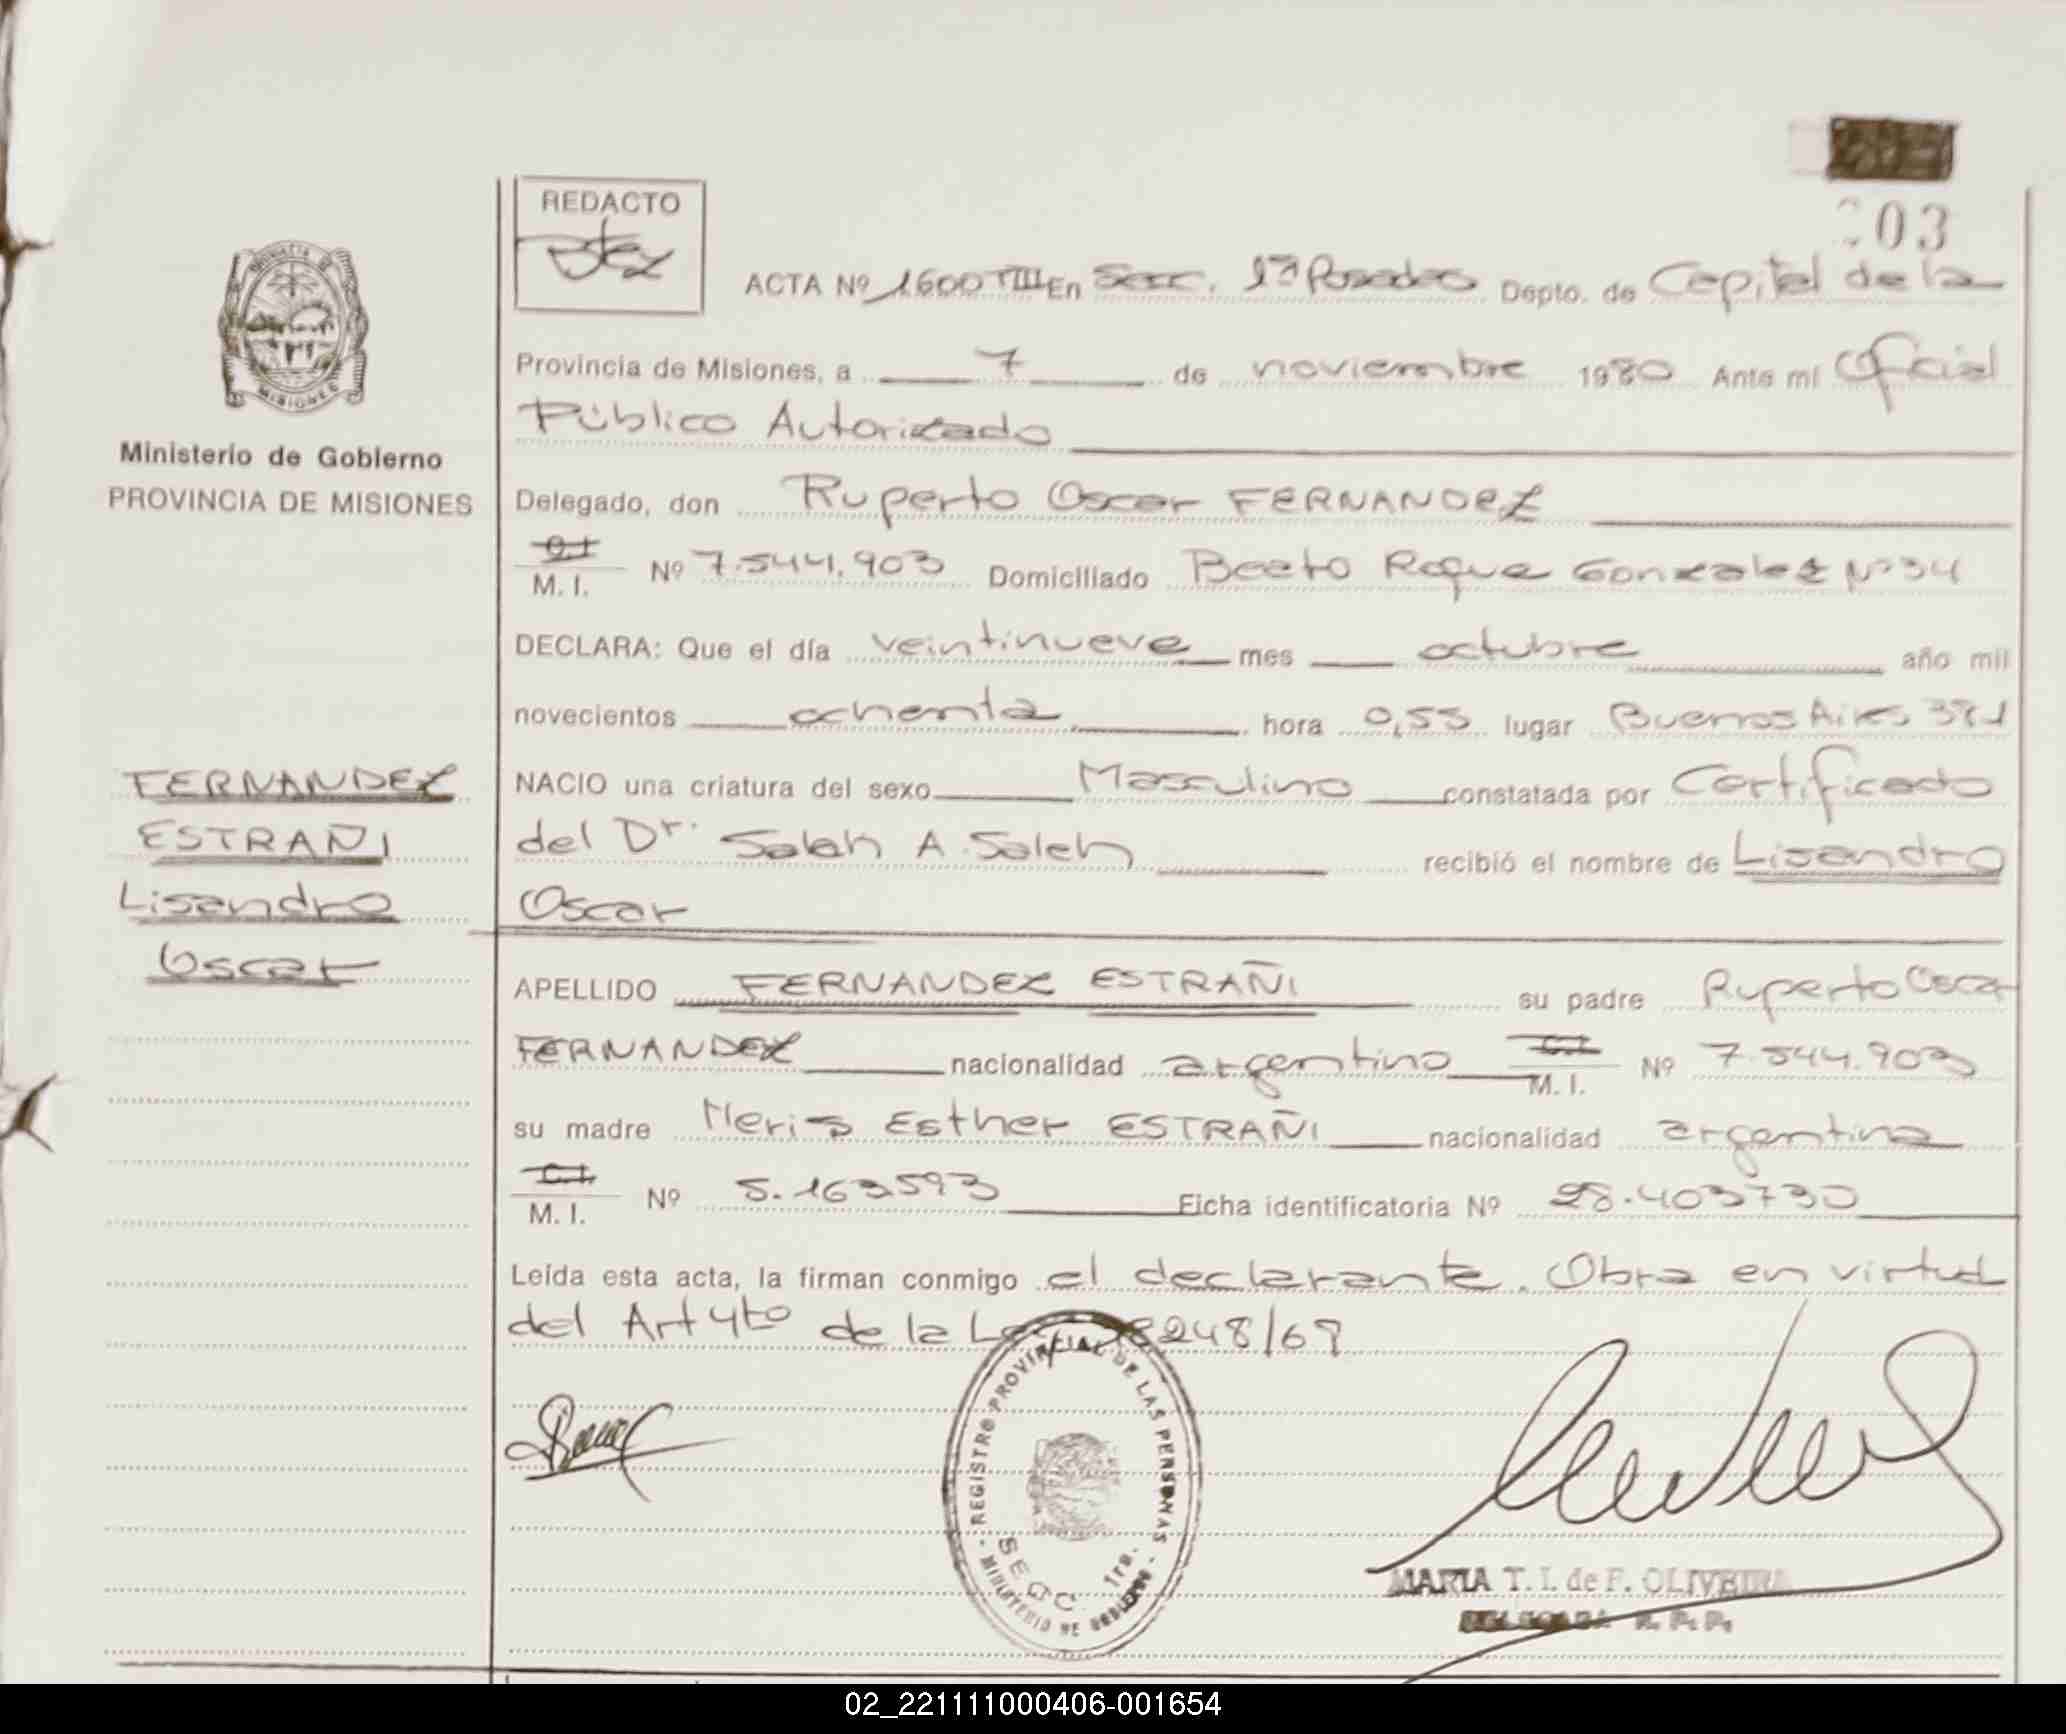 203
REDACTO
ACTA Nº 1600 TIII En Secc. 1ª Posadas Depto. de Capital de la
Provincia de Misiones, a 7 de noviembre 1980 Ante mi Oficial
Público Autorizado
Ministerio de Gobierno
PROVINCIA DE MISIONES
Delegado, don Ruperto Oscar FERNANDEZ
C.I. M. I. Nº 7.544.903 Domiciliado Beato Roque Gonzalez Nº 34
DECLARA: Que el día veintinueve mes octubre año mil
novecientos ochenta hora 0,55 lugar Buenos Aires 381
FERNANDEZ
ESTRAÑI
Lisandro
Oscar
NACIO una criatura del sexo Masculino constatada por Certificado
del Dr. Saleh A. Saleh recibió el nombre de Lisandro
Oscar
APELLIDO FERNANDEZ ESTRAÑI su padre Ruperto Oscar
FERNANDEZ nacionalidad argentino C.I. M. I. Nº 7.544.903
su madre Esther ESTRAÑI nacionalidad argentina
C.I. M. I. Nº 5.163.593 Ficha identificatoria Nº 28.403730
Leída esta acta, la firman conmigo el declarante. Obra en virtud
del Art 4to de la Ley 18248/69
REGISTRO PROVINCIAL DE LAS PERSONAS
SECC. 1ra.
MINISTERIO DE GOBIERNO
MARIA T. I. de F. OLIVEIRA
DELEGADA R. P. P.
02_221111000406-001654